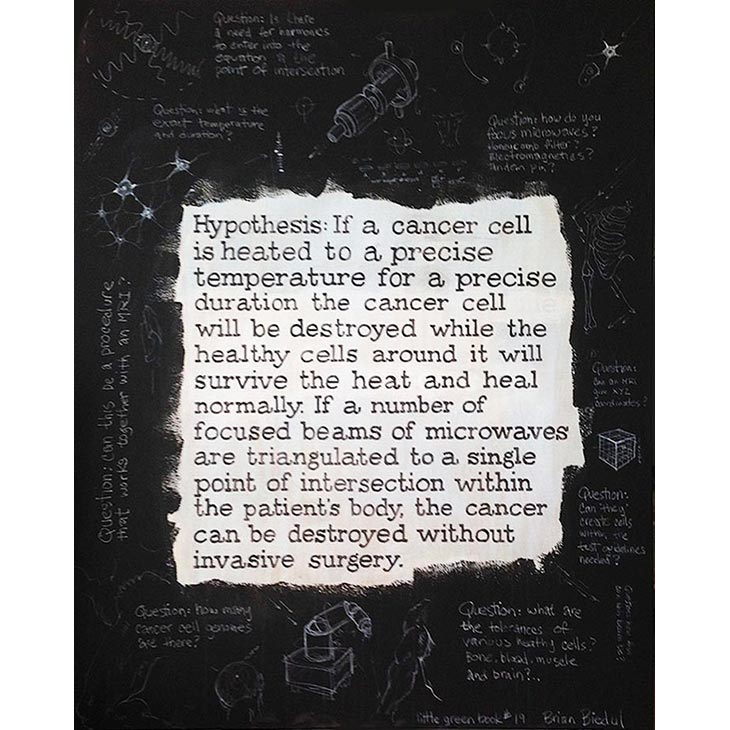 Question: Is there
a need for harmones
to enter into the
equation @ the
point of intersection
Question: what is the
exact temperature
and duration?
Question: how do you
focus microwaves?
Honeycomb filter?
Electromagnetics?
Hypothesis: If a cancer cell
is heated to a precise
temperature for a precise
duration the cancer cell
will be destroyed while the
healthy cells around it will
survive the heat and heal
normally. If a number of
focused beams of microwaves
are triangulated to a single
point of intersection within
the patient's body, the cancer
can be destroyed without
invasive surgery.
Question: can this be a procedure
that works together with an MRI?
Question:
can an MRI
give XYZ
coordinates?
Question:
Can they
create cells
within the
test guidelines
needed?
Question: how many
cancer cell genomes
are there?
Question: what are
the tolerances of
various healthy cells?
Bone, blood, muscle
and brain?..
little green book #19 Brian Biedul